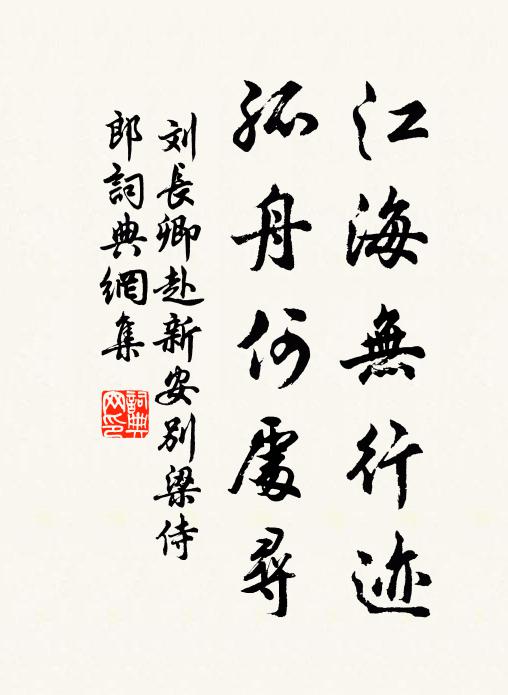 江海無行迹
孤舟何處尋
刘長卿赴新安别梁侍
郎詞典網集
詞典
网印